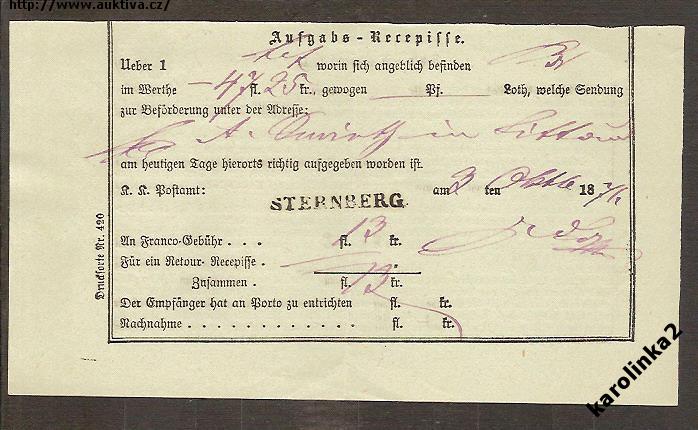 http://www.auktiva.cz/
Aufgabs-Recepisse.
Ueber 1 worin sich angeblich befinden
im Werthe 47 fl. 25 kr., gewogen Pf. Loth, welche Sendung
zur Beförderung unter der Adresse:
A. in Littau
am heutigen Tage hierorts richtig aufgegeben worden ist.
K. K. Postamt: am 3 ten 18
STERNBERG.
An Franco-Gebühr . . . fl. 13 kr.
Für ein Retour-Recepisse .
Zusammen . fl. 13 kr.
Der Empfänger hat an Porto zu entrichten fl. kr.
Nachnahme . . . . . . . . . . . fl. kr.
Drucksorte Nr. 420
karolinka2